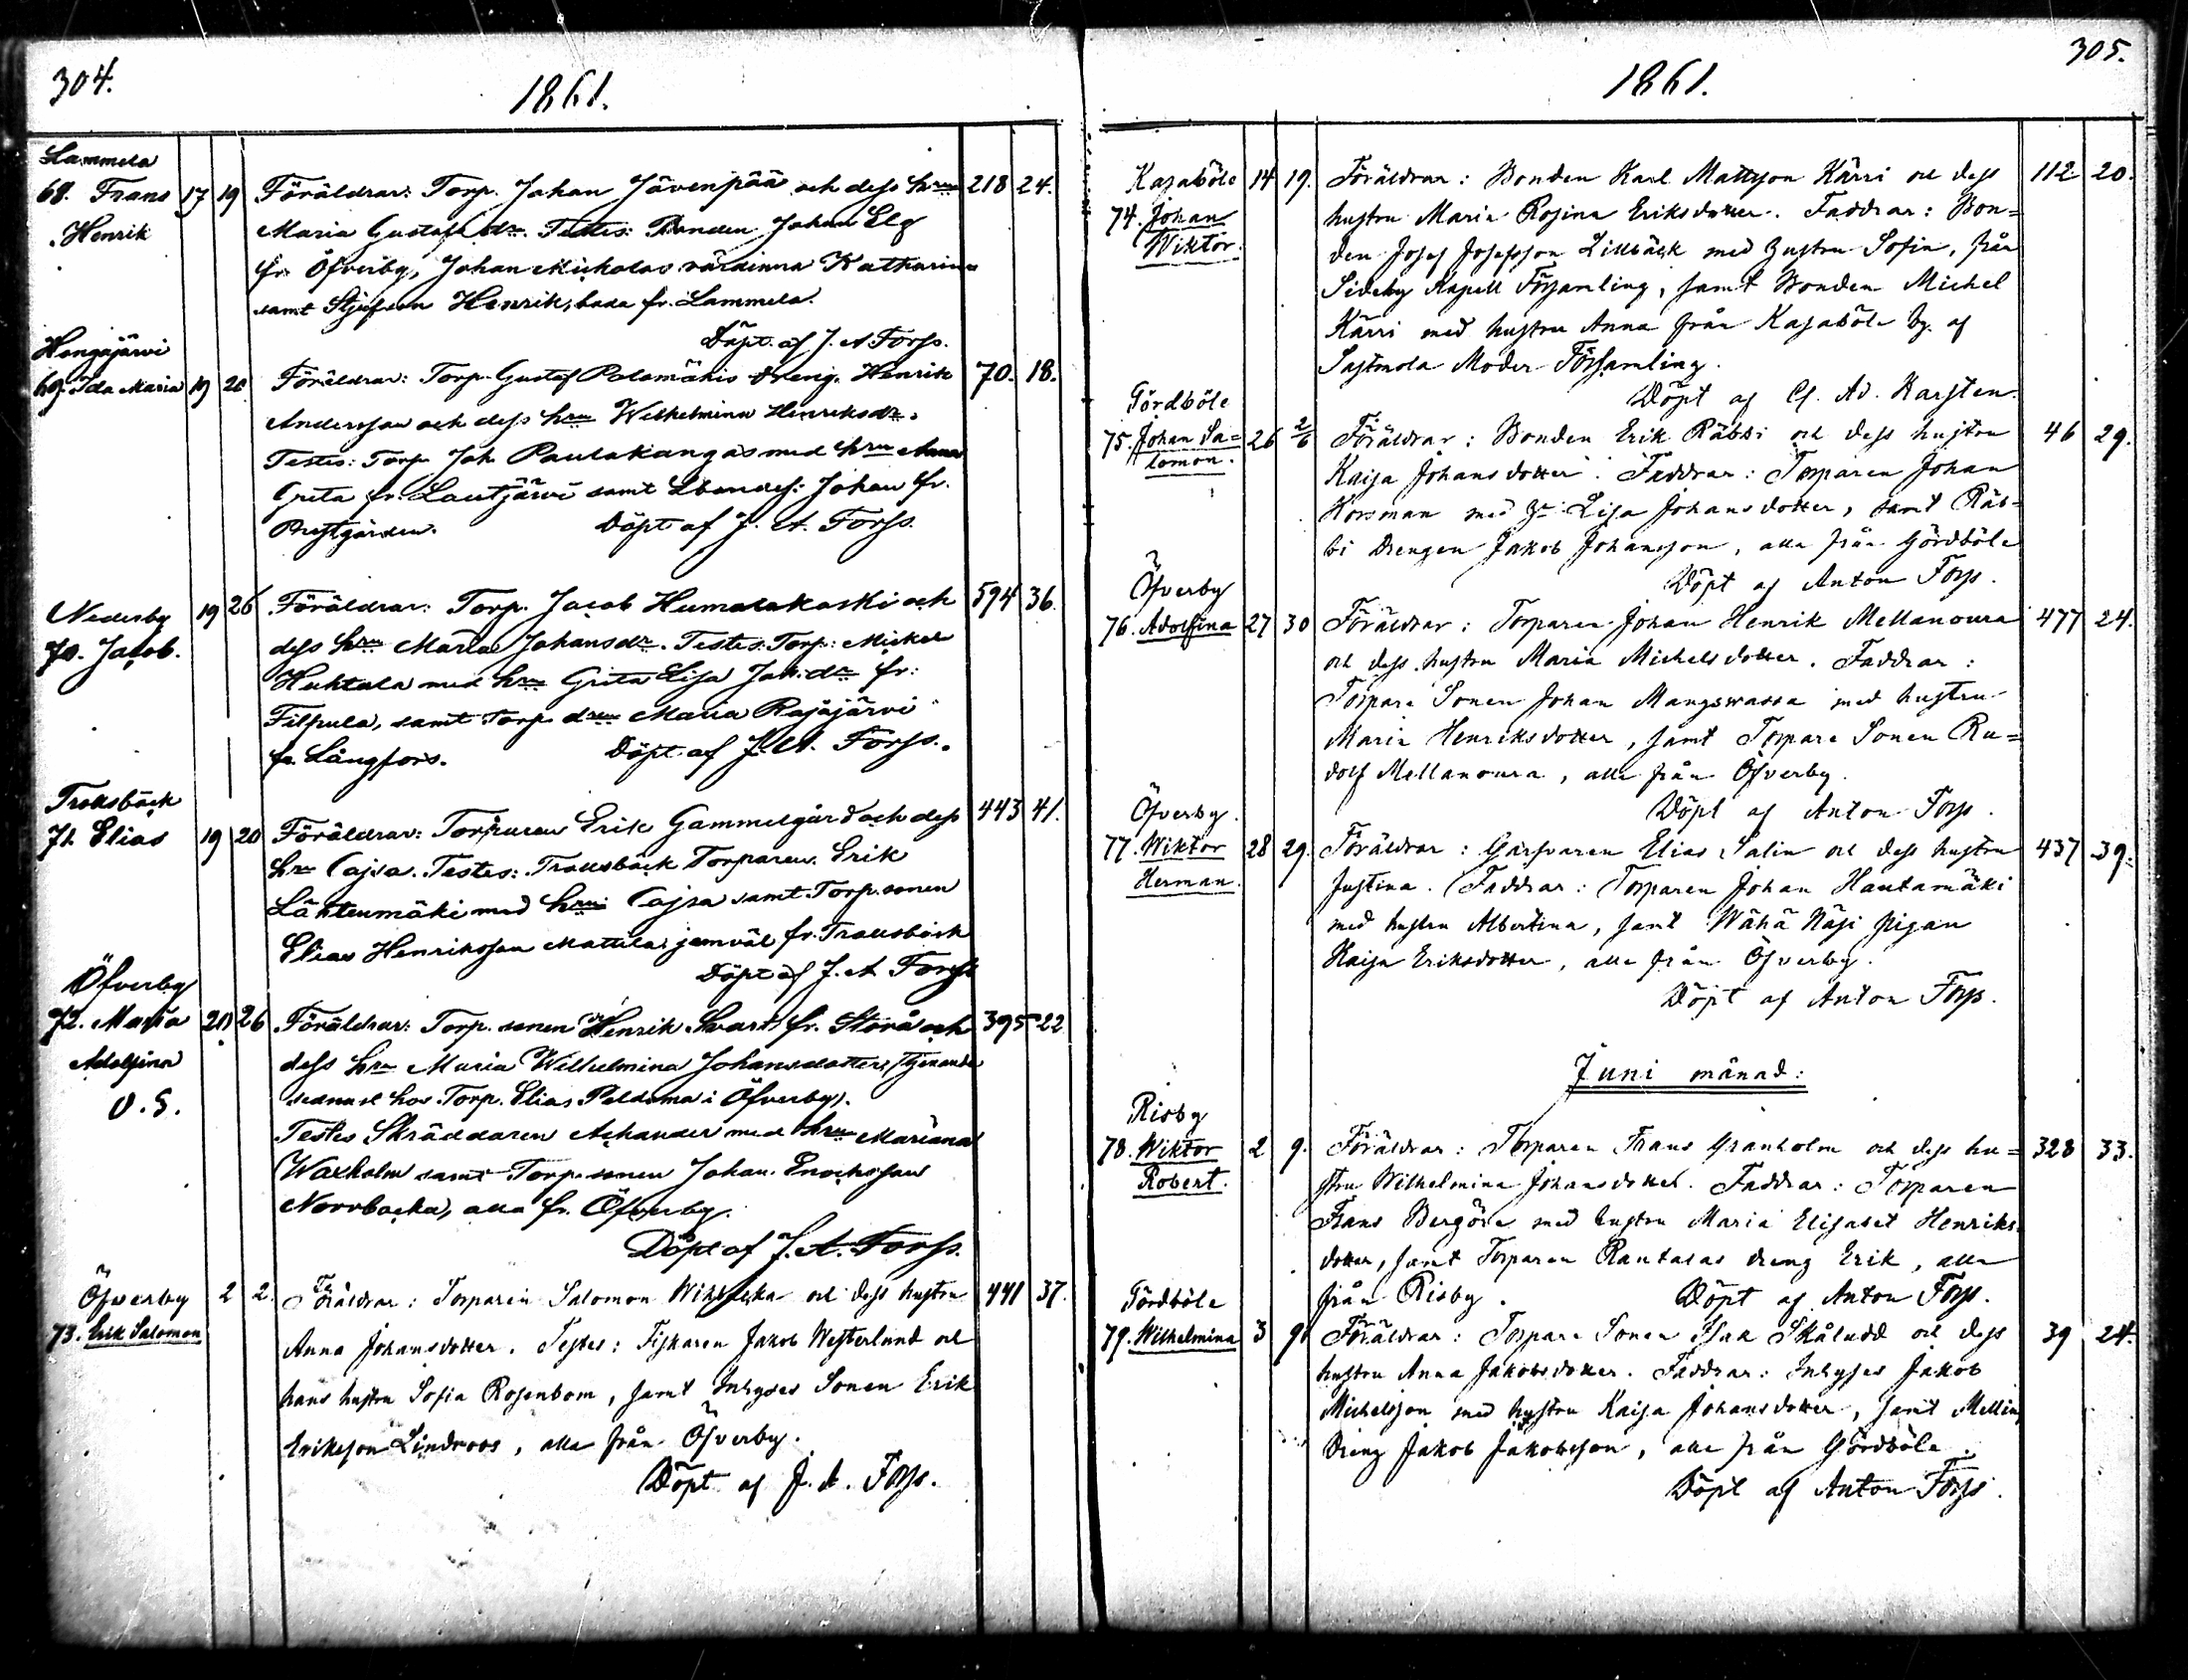 304.
1861.
Lammela
68. Frans 17 19 Föräldrar: Torp. Johan Jävenpää och dess hru 218 24.
Henrik Maria Gustafsdr. Testes: Bonden Johan Elg
fr. Öfverby, Johan Mickolas värdinna Katharina
samt Stjufson Henrik, båda fr. Lammela.
Döpt. af J. A Forss.
Hongajärvi
69. Ida Maria 19 20 Föräldrar: Torp. Gustaf Palomäkis dreng. Henrik 70. 18.
Andersson och dess hru Wilhelmina Henriksdr.
Testes: Torp. Joh. Paulakangas med hru Anna
Greta fr. Lautjärvi samt Johan fr.
Prestgården. Döpt af J. A. Forss.
Nederby 19 26 Föräldrar: Torp. Jacob Humalakoski och 594 36.
70. Jacob. dess hru Maria Johansdr. Testes: Torp: Mickel
Huhtala med hru Greta Lisa Joh.dr fr:
Filpula, samt Torp. Maria Rajajärvi
fr. Långfors. Döpt af J. A. Forss.
Trollsbäck
71. Elias 19 20 Föräldrar: Torparen Erik Gammelgård och dess 443 41.
hru Cajsa. Testes: Trollsbäck Torparen Erik
Lähteenmäki med hru Cajsa samt Torp. sonen
Elias Henriksson Mattila, jemväl fr. Trollsbäck
Döpt af J. A Forss
Öfverby
72. Maria 20 26 Föräldrar: Torp. sonen Henrik Svart fr. Storå och 395 22
Adolfina dess hru Maria Wilhelmina Johansdotter, (tjenande
O. S. hos Torp. Elias Peldoma i Öfverby).
Testes Skräddaren Achander med hru Mariana
Waxholm samt Torp. sonen Johan Enochsson
Norrbacka, alla fr. Öfverby.
Döpt af J. A. Forss.
Öfverby 2 2. Föräldrar: Torparen Salomon och dess hustru 441 37.
73. Erik Salomon Anna Johansdotter. Testes: Fiskaren Jakob Westerlund och
hans hustru Sofia Rosenbom, samt Inhyses Sonen Erik
Eriksson Lindroos, alla från Öfverby.
Döpt af J. A. Forss.
305.
1861.
Kasaböle 14 19. Föräldrar: Bonden Karl Mattsson Kärri och dess 112 20.
74. Johan hustru Maria Rosina Eriksdotter. Faddrar: Bon=
Wiktor. den Josef Josefsson Lillbäck med hustru Sofia, från
Sideby Kapell Församling, samt Bonden Michel
Kärri med hustru Anna från Kasaböle by af
Sastmola Moder Församling.
Döpt af C. Ad. Karsten.
Gördböle
75. Johan Sa= 26 2/6 Föräldrar: Bonden Erik Räbbi och dess hustru 46 29.
lomon. Kaisa Johansdotter. Faddrar: Torparen Johan
Korsman med h Lisa Johansdotter, samt Räb=
bi Drengen Jakob Johansson, alla från Gördböle
Döpt af Anton Forss.
Öfverby
76. Adolfina 27 30 Föräldrar: Torparen Johan Henrik Mellanoura 477 24.
och dess hustru Maria Michelsdotter. Faddrar:
Torpare Sonen Johan Mangswassa med hustru
Maria Henriksdotter, samt Torpare Sonen Ru=
dolf Mellanoura, alla från Öfverby.
Döpt af Anton Forss.
Öfverby.
77. Wiktor 28 29. Föräldrar: Garfvaren Elias Salin och dess hustru 437 39.
Herman. Justina. Faddrar: Torparen Johan Hautamäki
med hustru Albertina, samt Wähä Näsi pigan
Kaisa Eriksdotter, alla från Öfverby.
Döpt af Anton Forss.
Juni månad:
Risby
78. Wiktor 2 9. Föräldrar: Torparen Frans Granholm och dess hu= 328 33.
Robert. stru Wilhelmina Johansdotter. Faddrar: Torparen
Frans Bergöre med hustru Maria Elisabet Henriks
dotter, samt Torparen Rantalas dreng Erik, alla
från Risby. Döpt af Anton Forss.
Gördböle
79. Wilhelmina 3 9. Föräldrar: Torpare Sonen Isak Skåludd och dess 39 24.
hustru Anna Jakobsdotter. Faddrar: Inhyses Jakob
Michelsson med hustru Kaisa Johansdotter, samt Mellin
Dreng Jakob Jakobsson, alla från Gördböle.
Döpt af Anton Forss.